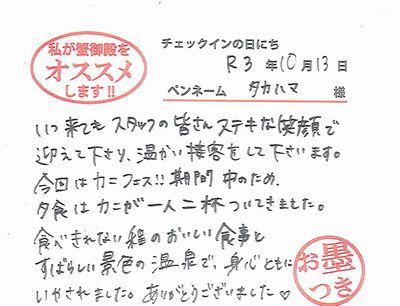 私が蟹御殿を
オススメ
します!!
チェックインの日にち
R3 年 10 月 13 日
ペンネーム タカハマ 様
いつ来ても スタッフの皆さん ステキな笑顔で
迎えて下さり、温かい接客をして下さいます。
今回はカニフェス!! 期間中のため、
夕食はカニが一人二杯ついてきました。
食べきれない程のおいしい食事と
すばらしい景色の温泉で、身心ともに
いやされました。ありがとうございました♡
お墨
つき